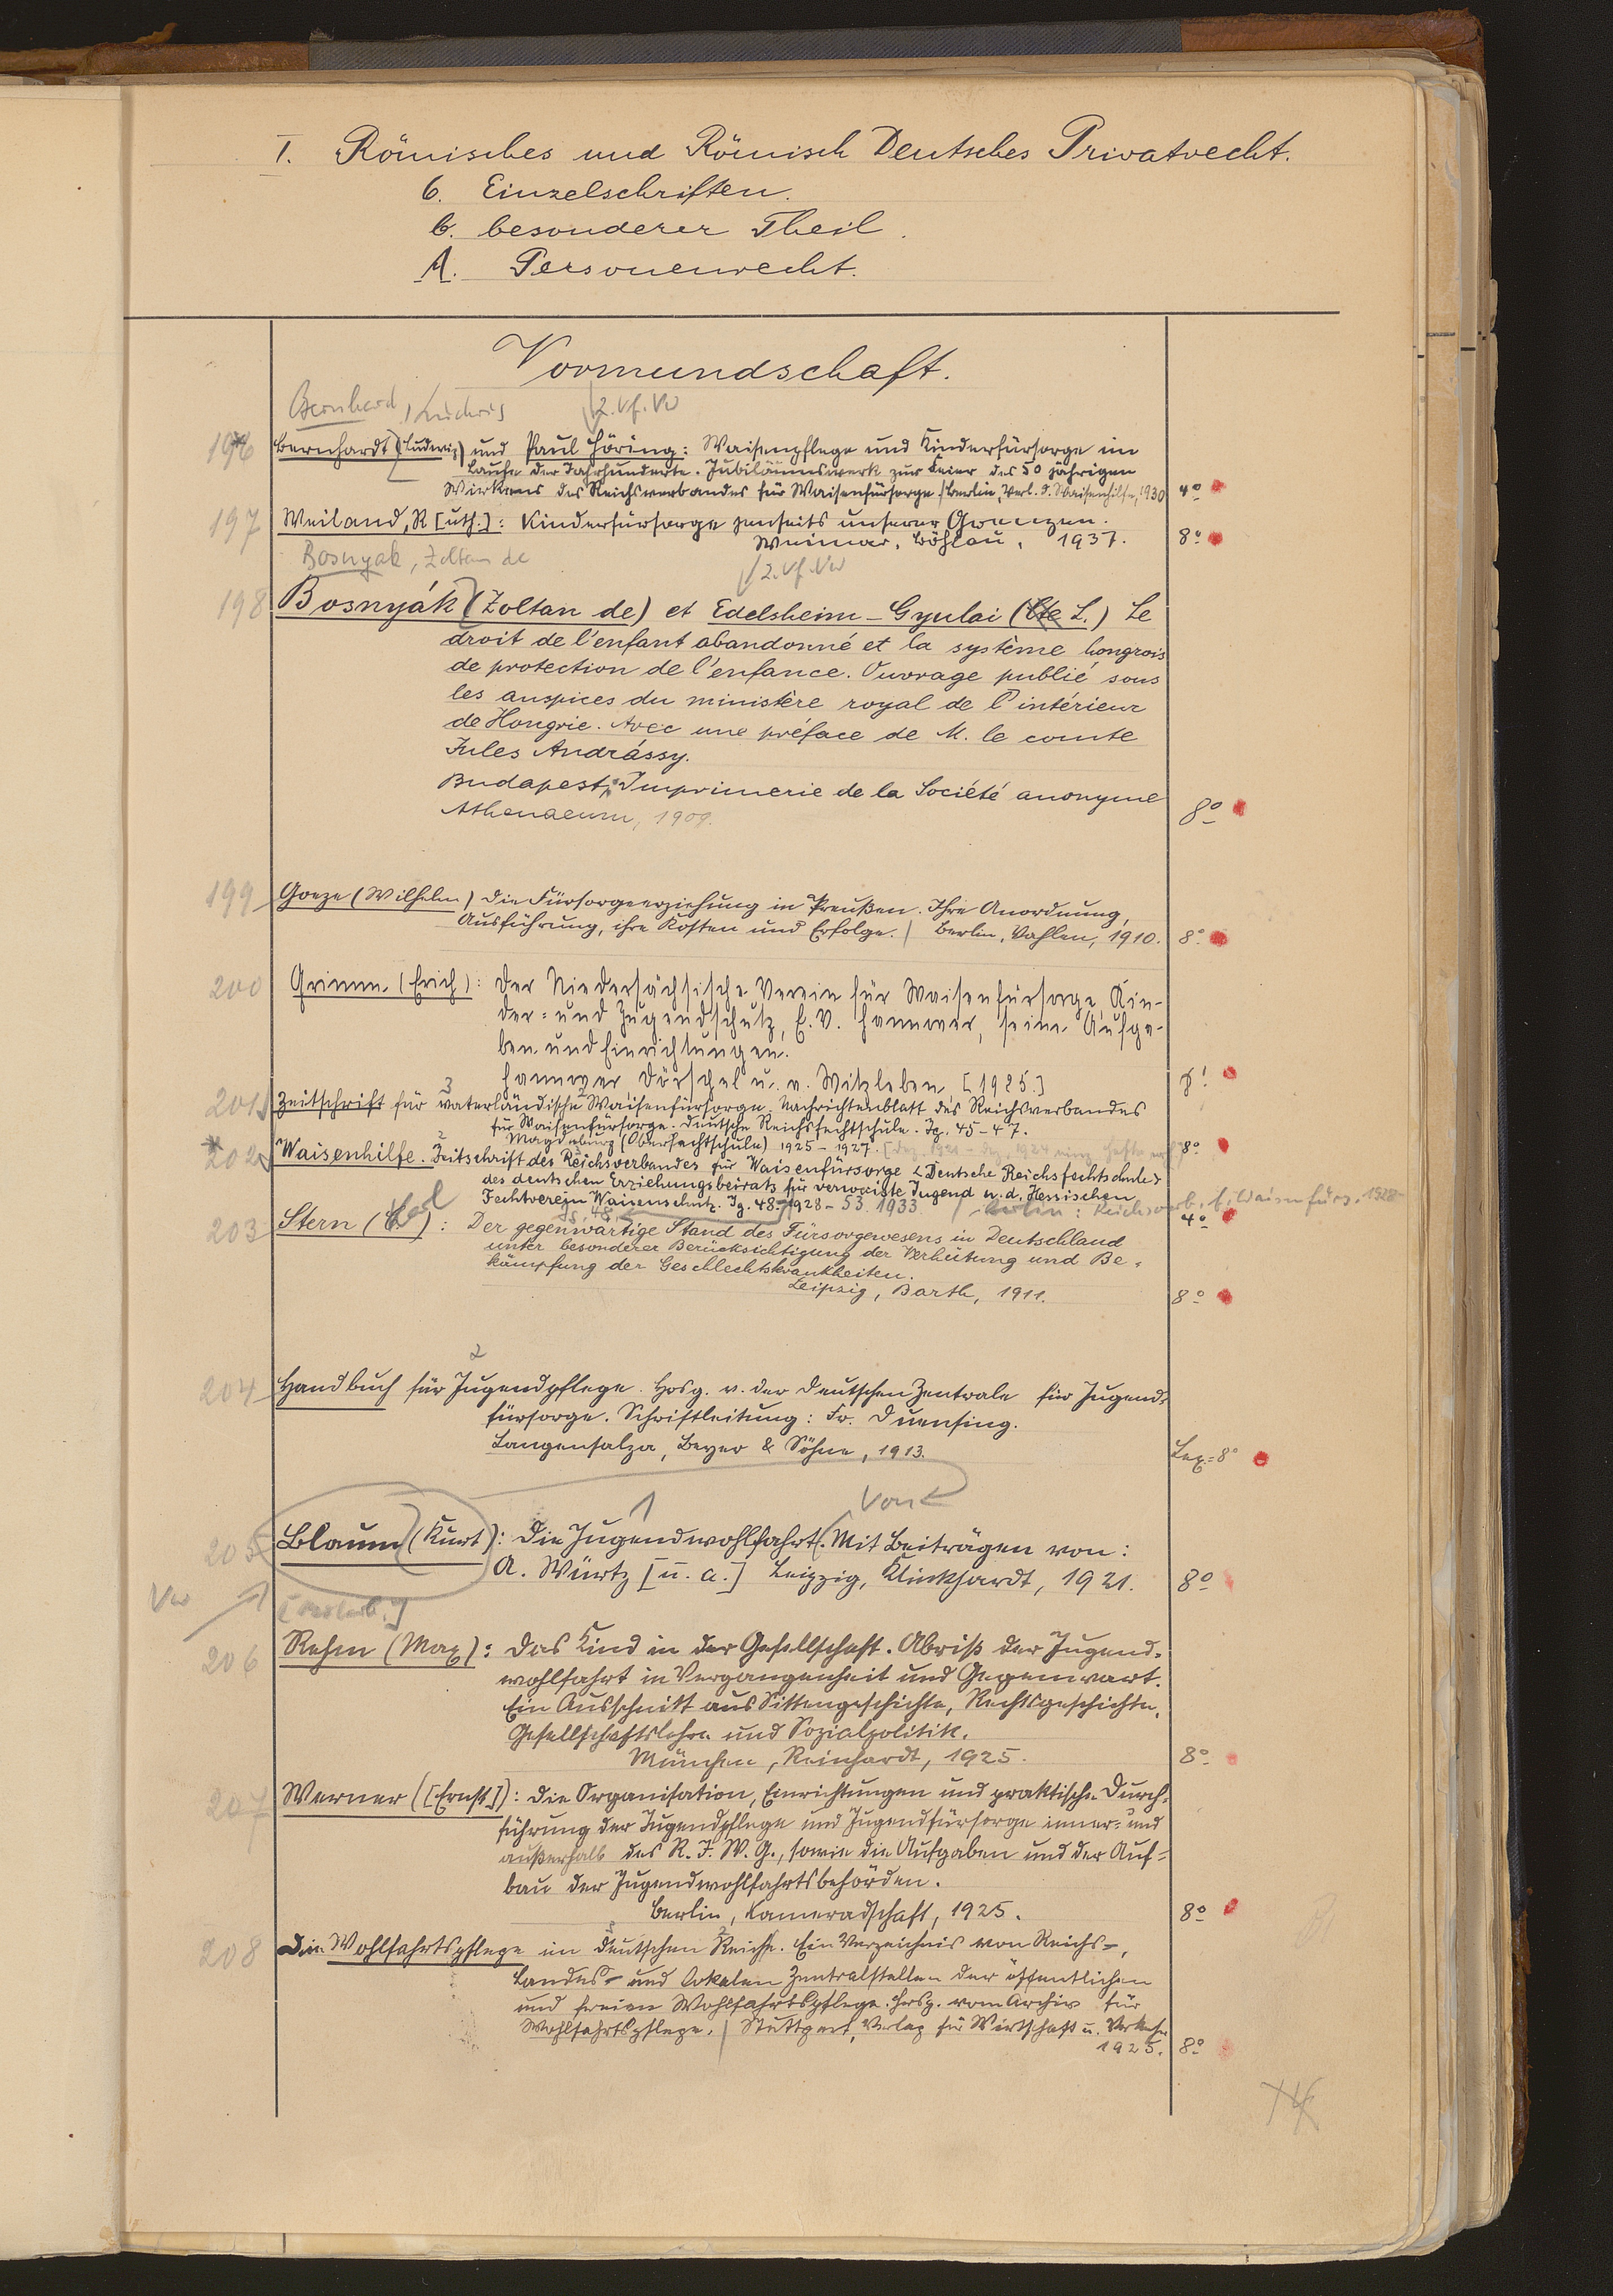 I. Römisches und Römisch Deutsches Privatrecht.
6. Einzelschriften.
b. besonderer Theil.
A. Personenrecht.
Vormundschaft.
Bernhard, Ludwig
2. Vf. Vw
196 Bernhardt (Ludwig) und Paul Höring: Waisenpflege und Kinderfürsorge im
Laufe der Jahrhunderte. Jubiläumswerk zur Feier des 50 jährigen
Wirkens des Reichsverbandes für Waisenfürsorge / Berlin, Verl. d. Waisenhilfe, 1930 4°
197 Weiland, R[uth.]: Kinderfürsorge jenseits unserer Grenzen.
Weimar, Böhlau, 1937. 8°
Bosnyak, Zoltan de
2. Vf. Vw
198 Bosnyák (Zoltan de) et Edelsheim-Gyulai (Cte L.) Le
droit de l'enfant abandonné et la système hongrois
de protection de l'enfance. Ouvrage publié sous
les auspices du ministère royal de l'intérieur
de Hongrie. Avec une préface de M. le comte
Jules Andrássy.
Budapest, Imprimerie de la Société anonyme
Athenaeum, 1909. 8°
199 Goeze (Wilhelm) Die Fürsorgeerziehung in Preußen. Ihre Anordnung,
Ausführung, ihre Kosten und Erfolge. / Berlin, Vahlen, 1910. 8°
200 Grimm (Erich): Der Niedersächsische Verein für Waisenfürsorge, Kin-
der- und Jugendschutz, E.V. Hannover, seine Aufga-
ben und Einrichtungen.
Hannover, Dörschel u. v. Witzleben, [1925.] 8°
201 Zeitschrift für vaterländische Waisenfürsorge. Nachrichtenblatt des Reichsverbandes
für Waisenfürsorge. Deutsche Reichsfechtschule. Jg. 45-47.
Magdeburg (Oberfechtschule) 1925-1927. 8°
202 Waisenhilfe. Zeitschrift des Reichsverbandes für Waisenfürsorge <Deutsche Reichsfechtschule>
des deutschen Erziehungsbeirats für verwaiste Jugend u. d. Hessischen
Fechtverein Waisenschutz. Jg. 48. 1928-53. 1933. / Berlin: Reichsverb. f. Waisenfürs. 1928- 4°
203 Stern (): Der gegenwärtige Stand des Fürsorgewesens in Deutschland
unter besonderer Berücksichtigung der Verhütung und Be-
kämpfung der Geschlechtskrankheiten.
Leipzig, Barth, 1911. 8°
204 Handbuch für Jugendpflege. Hrsg. v. der Deutschen Zentrale für Jugend-
fürsorge. Schriftleitung: Fr. Duensing.
Langensalza, Beyer & Söhne, 1913. Lex.-8°
Von
205 Blaum (Kurt): Die Jugendwohlfahrt. Mit Beiträgen von:
A. Würtz [u. a.] Leipzig, Klinkhardt, 1921. 8°
Vw
206 Rehm (Max): Das Kind in der Gesellschaft. Abriß der Jugend-
wohlfahrt in Vergangenheit und Gegenwart.
Ein Ausschnitt aus Sittengeschichte, Rechtsgeschichte,
Gesellschaftslehre und Sozialpolitik.
München, Reinhardt, 1925. 8°
207 Werner ([Ernst]): Die Organisation, Einrichtungen und praktische Durch-
führung der Jugendpflege und Jugendfürsorge inner- und
außerhalb des R. J. W. G., sowie die Aufgaben und der Auf-
bau der Jugendwohlfahrtsbehörden.
Berlin, Kameradschaft, 1925. 8°
208 Die Wohlfahrtspflege im Deutschen Reiche. Ein Verzeichnis von Reichs-,
Landes- und lokalen Zentralstellen der öffentlichen
und freien Wohlfahrtspflege. Hrsg. vom Archiv für
Wohlfahrtspflege. / Stuttgart, Verlag für Wirtschaft u. Verkehr
1925. 8°